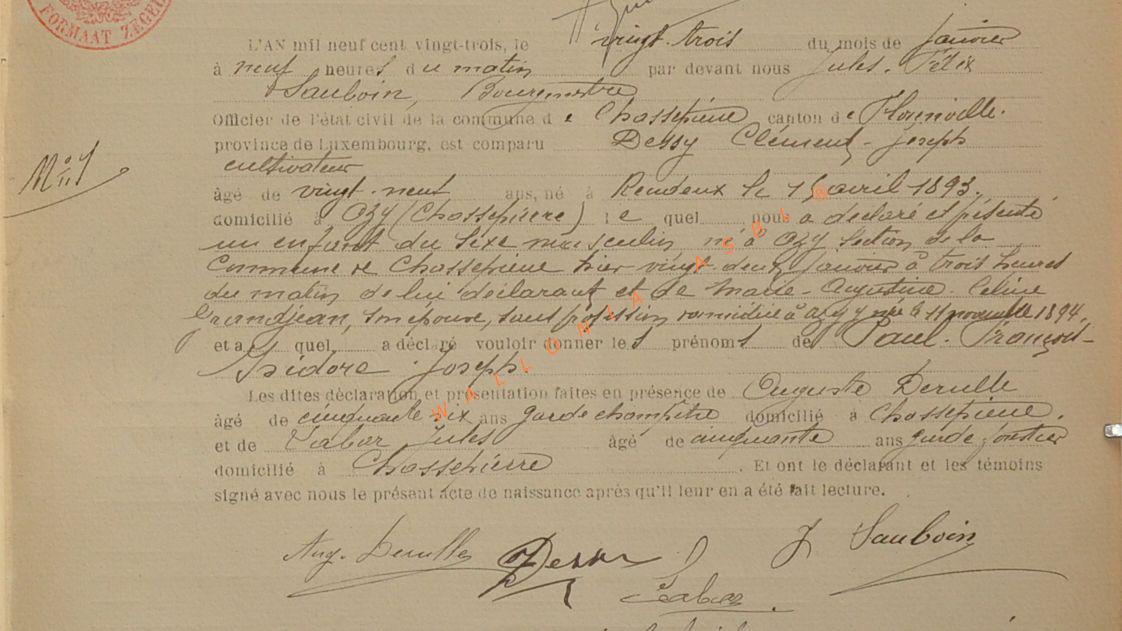 FORMAAT ZEGEL
L'AN mil neuf cent vingt-trois, le vingt-trois du mois de Janvier
à neuf heures du matin par devant nous Jules-Félix
Sauboin, Bourgmestre
Officier de l'état civil de la commune de Chassepierre canton de Florenville.
province de Luxembourg, est comparu Dessy Clément-Joseph
cultivateur
Mil
âgé de vingt-neuf ans, né à Rendeux le 15 avril 1893.
domicilié à Azy (Chassepierre) le quel nous a déclaré et présenté
un enfant du sexe masculin né à Azy section de la
Commune de Chassepierre hier vingt-deux Janvier à trois heures
du matin de lui déclarant et de Marie-Augustine-Céline
Grandjean, son épouse, sans profession domiciliée à Azy née le 11 novembre 1894.
et a quel a déclaré vouloir donner les prénoms de Paul-François-
Isidore Joseph.
Les dites déclaration et présentation faites en présence de Auguste Derulle
âgé de cinquante six ans garde champêtre domicilié à Chassepierre.
et de Tabar Jules âgé de cinquante ans garde forestier
domicilié à Chassepierre. Et ont le déclarant et les témoins
signé avec nous le présent acte de naissance après qu'il leur en a été fait lecture.
Aug. Derulle Dessy J Sauboin
Tabar
WALLONIA ASBL